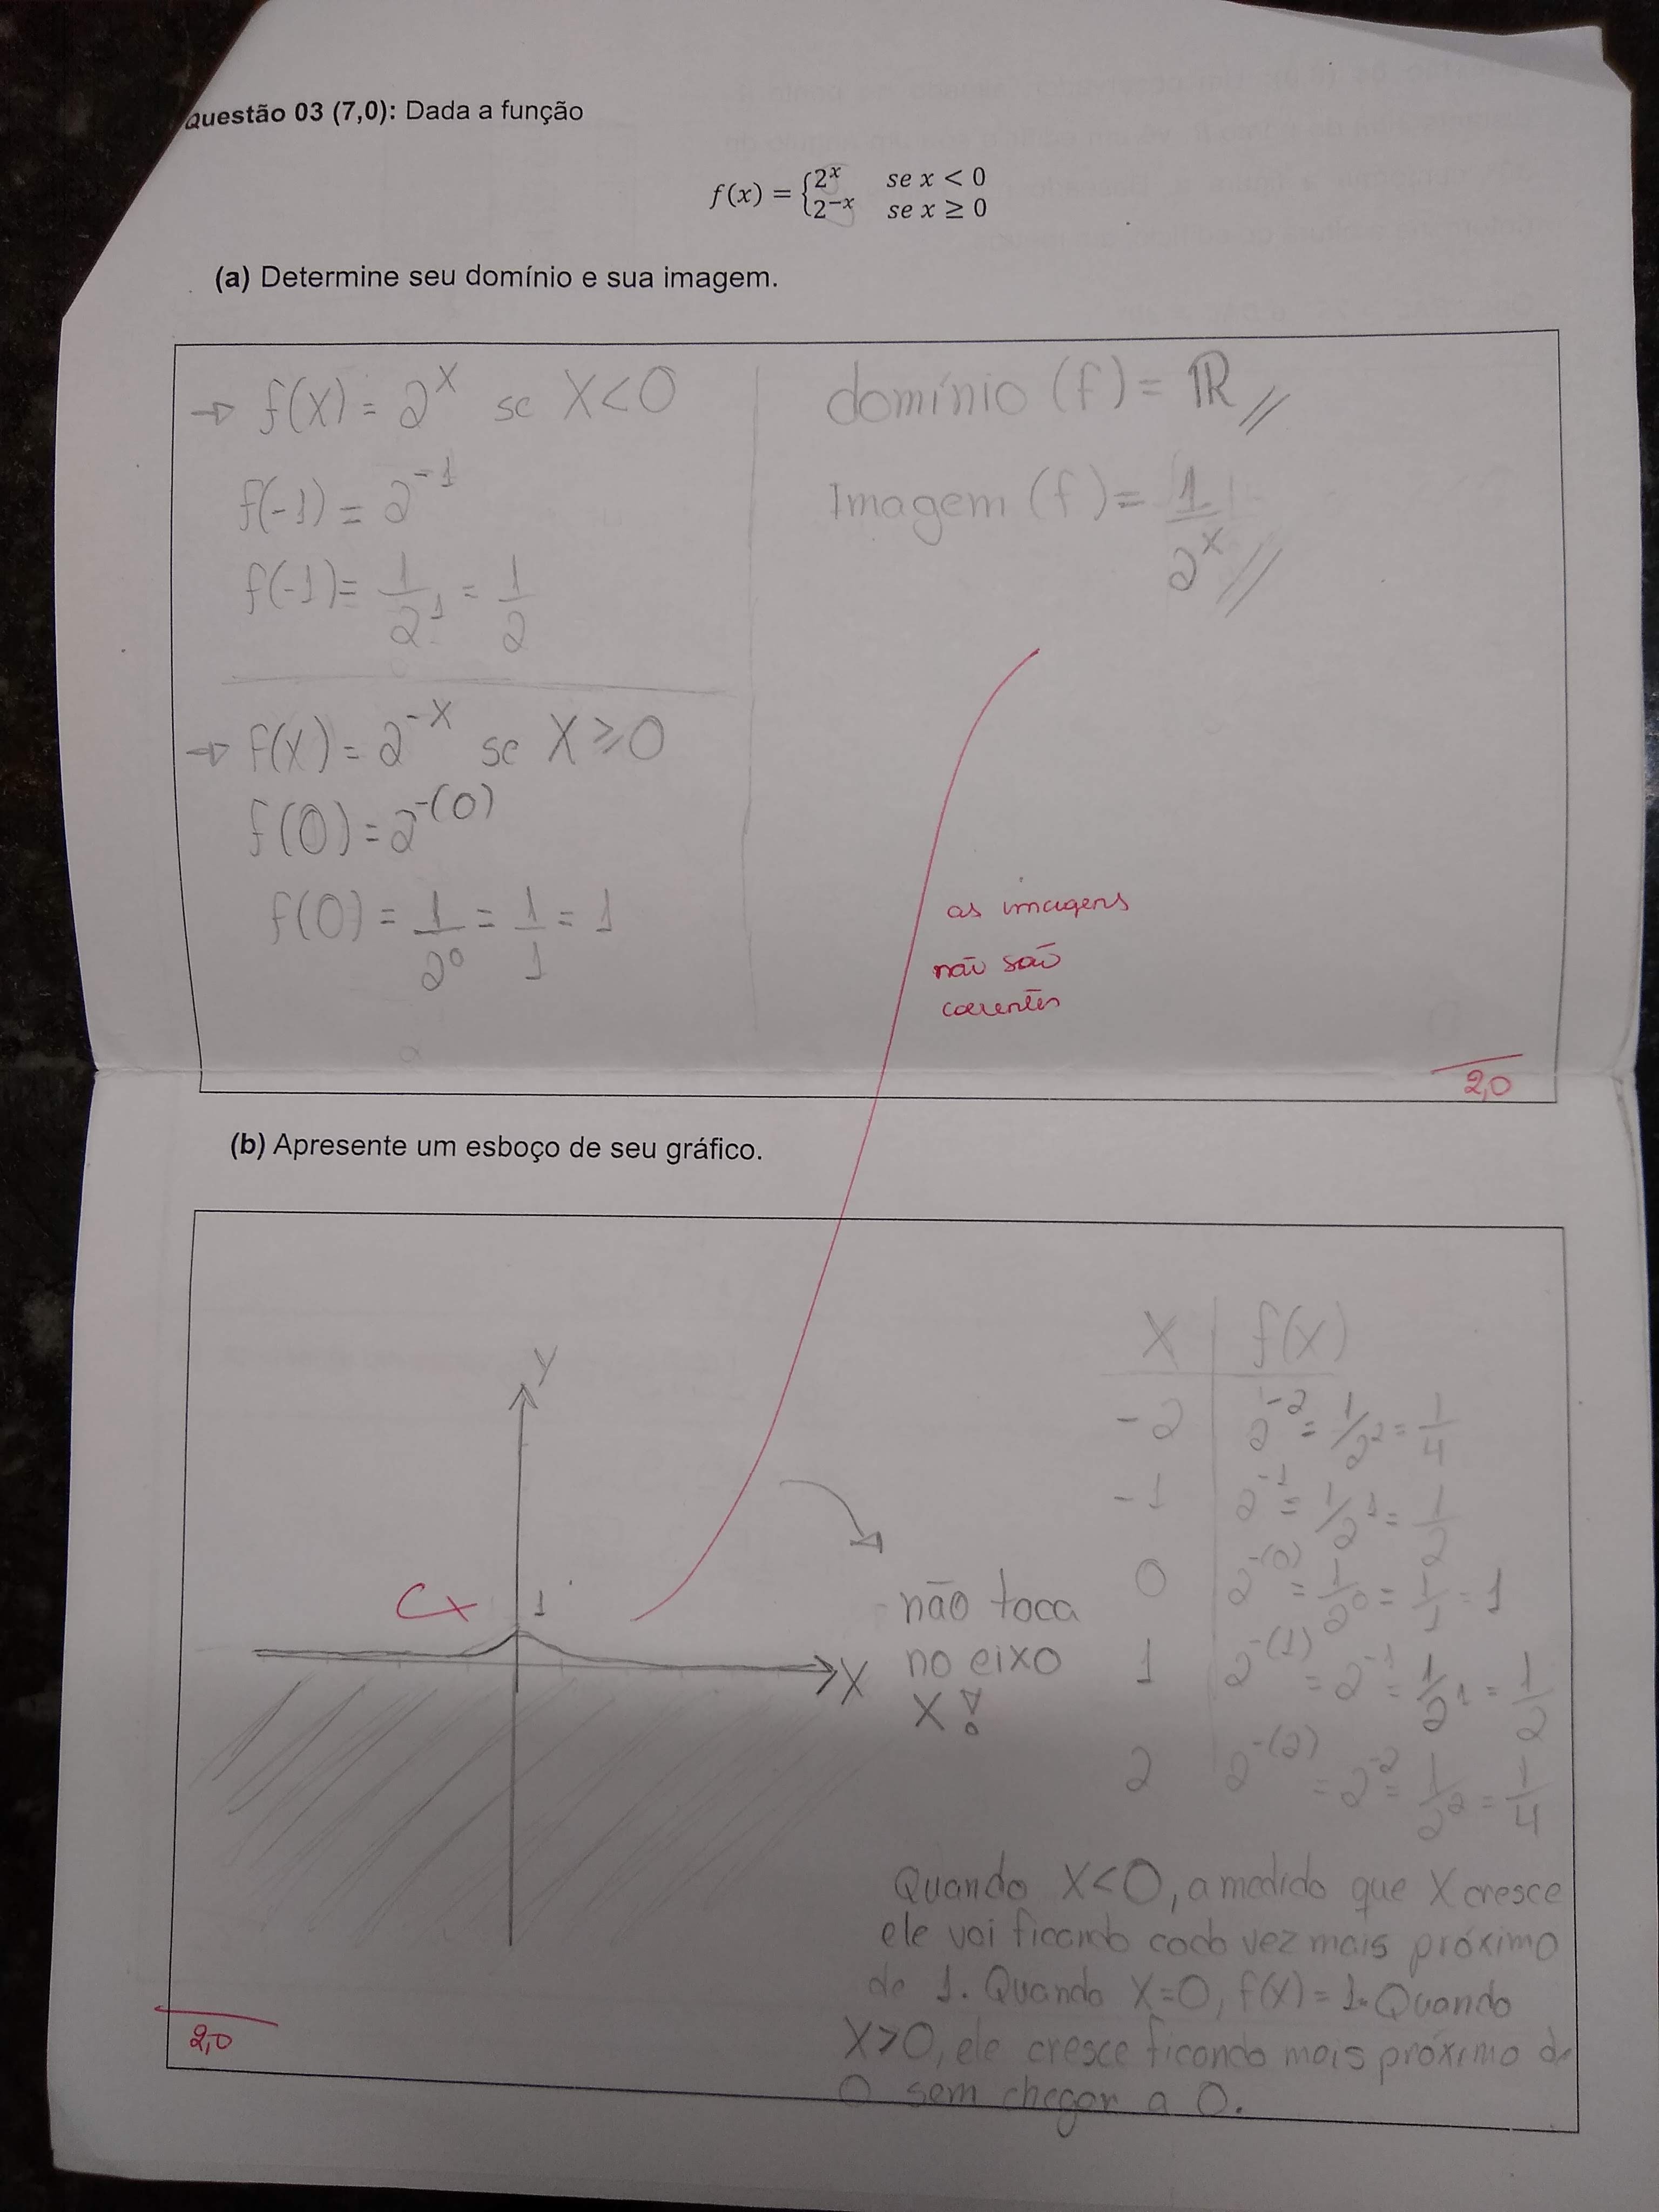 Questão 03 (7,0): Dada a função
f(x) = { 2^x se x < 0
2^-x se x ≥ 0
(a) Determine seu domínio e sua imagem.
→ f(x) = 2^x se x<0
f(-1) = 2^-1
f(-1) = 1/2^1 = 1/2
→ f(x) = 2^-x se x ≥ 0
f(0) = 2^-(0)
f(0) = 1/2^0 = 1/1 = 1
domínio (f) = ℝ //
Imagem (f) = 1/2^x //
as imagens
não são
coerentes
2,0
(b) Apresente um esboço de seu gráfico.
y
Cx
1
x
não toca
no eixo
x!
x | f(x)
-2 | 2^-2 = 1/2^2 = 1/4
-1 | 2^-1 = 1/2^1 = 1/2
0 | 2^-(0) = 1/2^0 = 1/1 = 1
1 | 2^-(1) = 2^-1 = 1/2^1 = 1/2
2 | 2^-(2) = 2^-2 = 1/2^2 = 1/4
Quando x<0, a medida que x cresce
ele vai ficando cada vez mais próximo
de 1. Quando x=0, f(x) = 1. Quando
x>0, ele cresce ficando mais próximo de
0 sem chegar a 0.
2,0